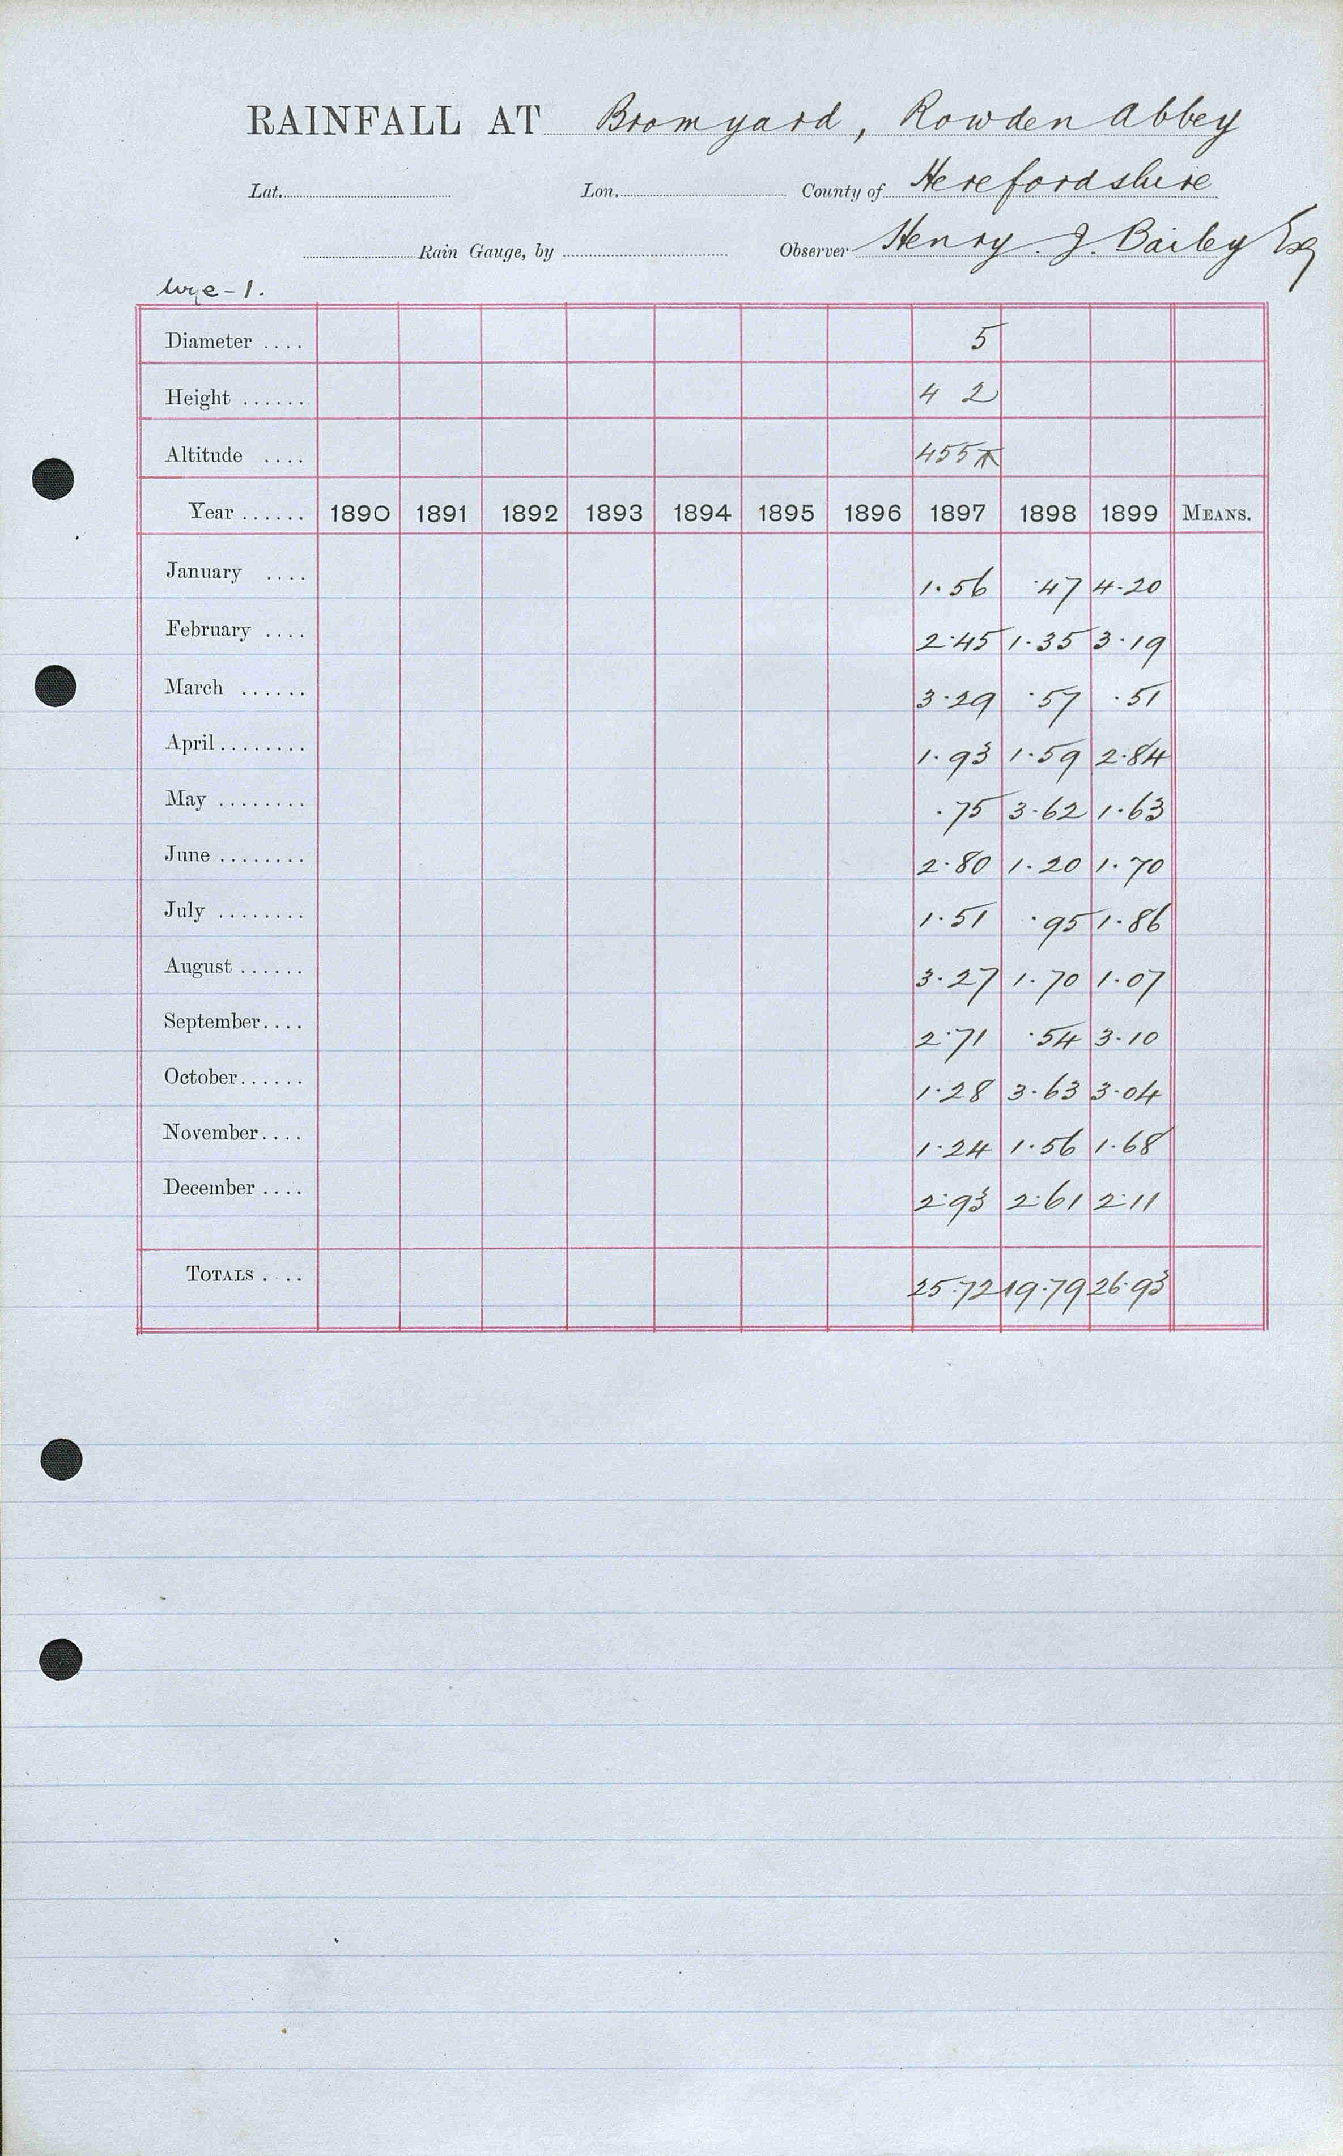 RAINFALL AT Bromyard, Rowden Abbey
Lat. Lon. County of Herefordshire
Rain Gauge, by Observer Henry. J. Bailey Esq
Wye-1.
Diameter .... 5
Height ...... 4 2
Altitude .... 455
Year ...... 1890 1891 1892 1893 1894 1895 1896 1897 1898 1899 MEANS.
January .... 1.56 .47 4.20
February .... 2.45 1.35 3.19
March ...... 3.29 .57 .51
April ........ 1.93 1.59 2.84
May ........ .75 3.62 1.63
June ........ 2.80 1.20 1.70
July ........ 1.51 .95 1.86
August ...... 3.27 1.70 1.07
September.... 2.71 .54 3.10
October...... 1.28 3.63 3.04
November.... 1.24 1.56 1.68
December .... 2.93 2.61 2.11
TOTALS .... 25.72 19.79 26.93